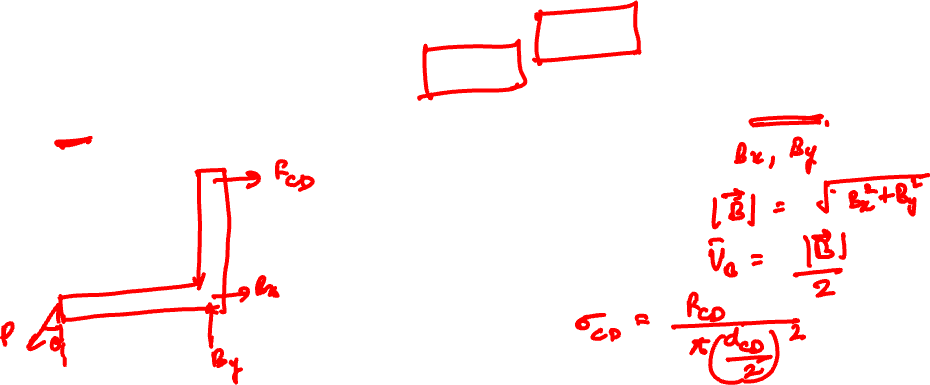 F_CD
B_x
P
θ
B_y
B_x, B_y
|B⃗| = √(B_x² + B_y²)
V_B = |B⃗| / 2
σ_CD = F_CD / π(d_CD / 2)²